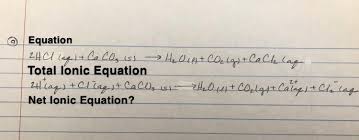 Equation
2HCl (aq) + CaCO₃ (s) → H₂O(l) + CO₂ (g) + CaCl₂ (aq
Total Ionic Equation
2H⁺(aq) + Cl⁻(aq) + CaCO₃ (s) → H₂O(l) + CO₂(g) + Ca²⁺(aq) + Cl₂⁻(aq
Net Ionic Equation?